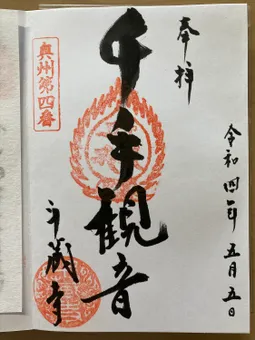 奉拝
令和四年五月五日
千手観音
奥州第四番
斗蔵寺